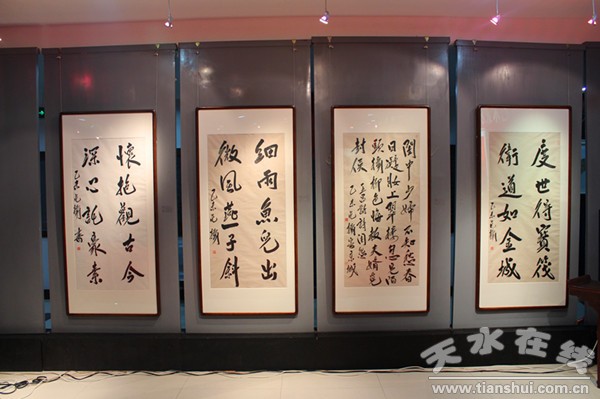 懷抱觀古今
深心託豪素
乙未
細雨魚兒出
微風燕子斜
乙未
閨中少婦不知愁春
日凝妝上翠樓忽見陌
頭楊柳色悔教夫婿覓
封侯 王昌齡詩閨怨
乙未
度世得寶筏
衛道如金城
乙未
天水在线
www.tianshui.com.cn